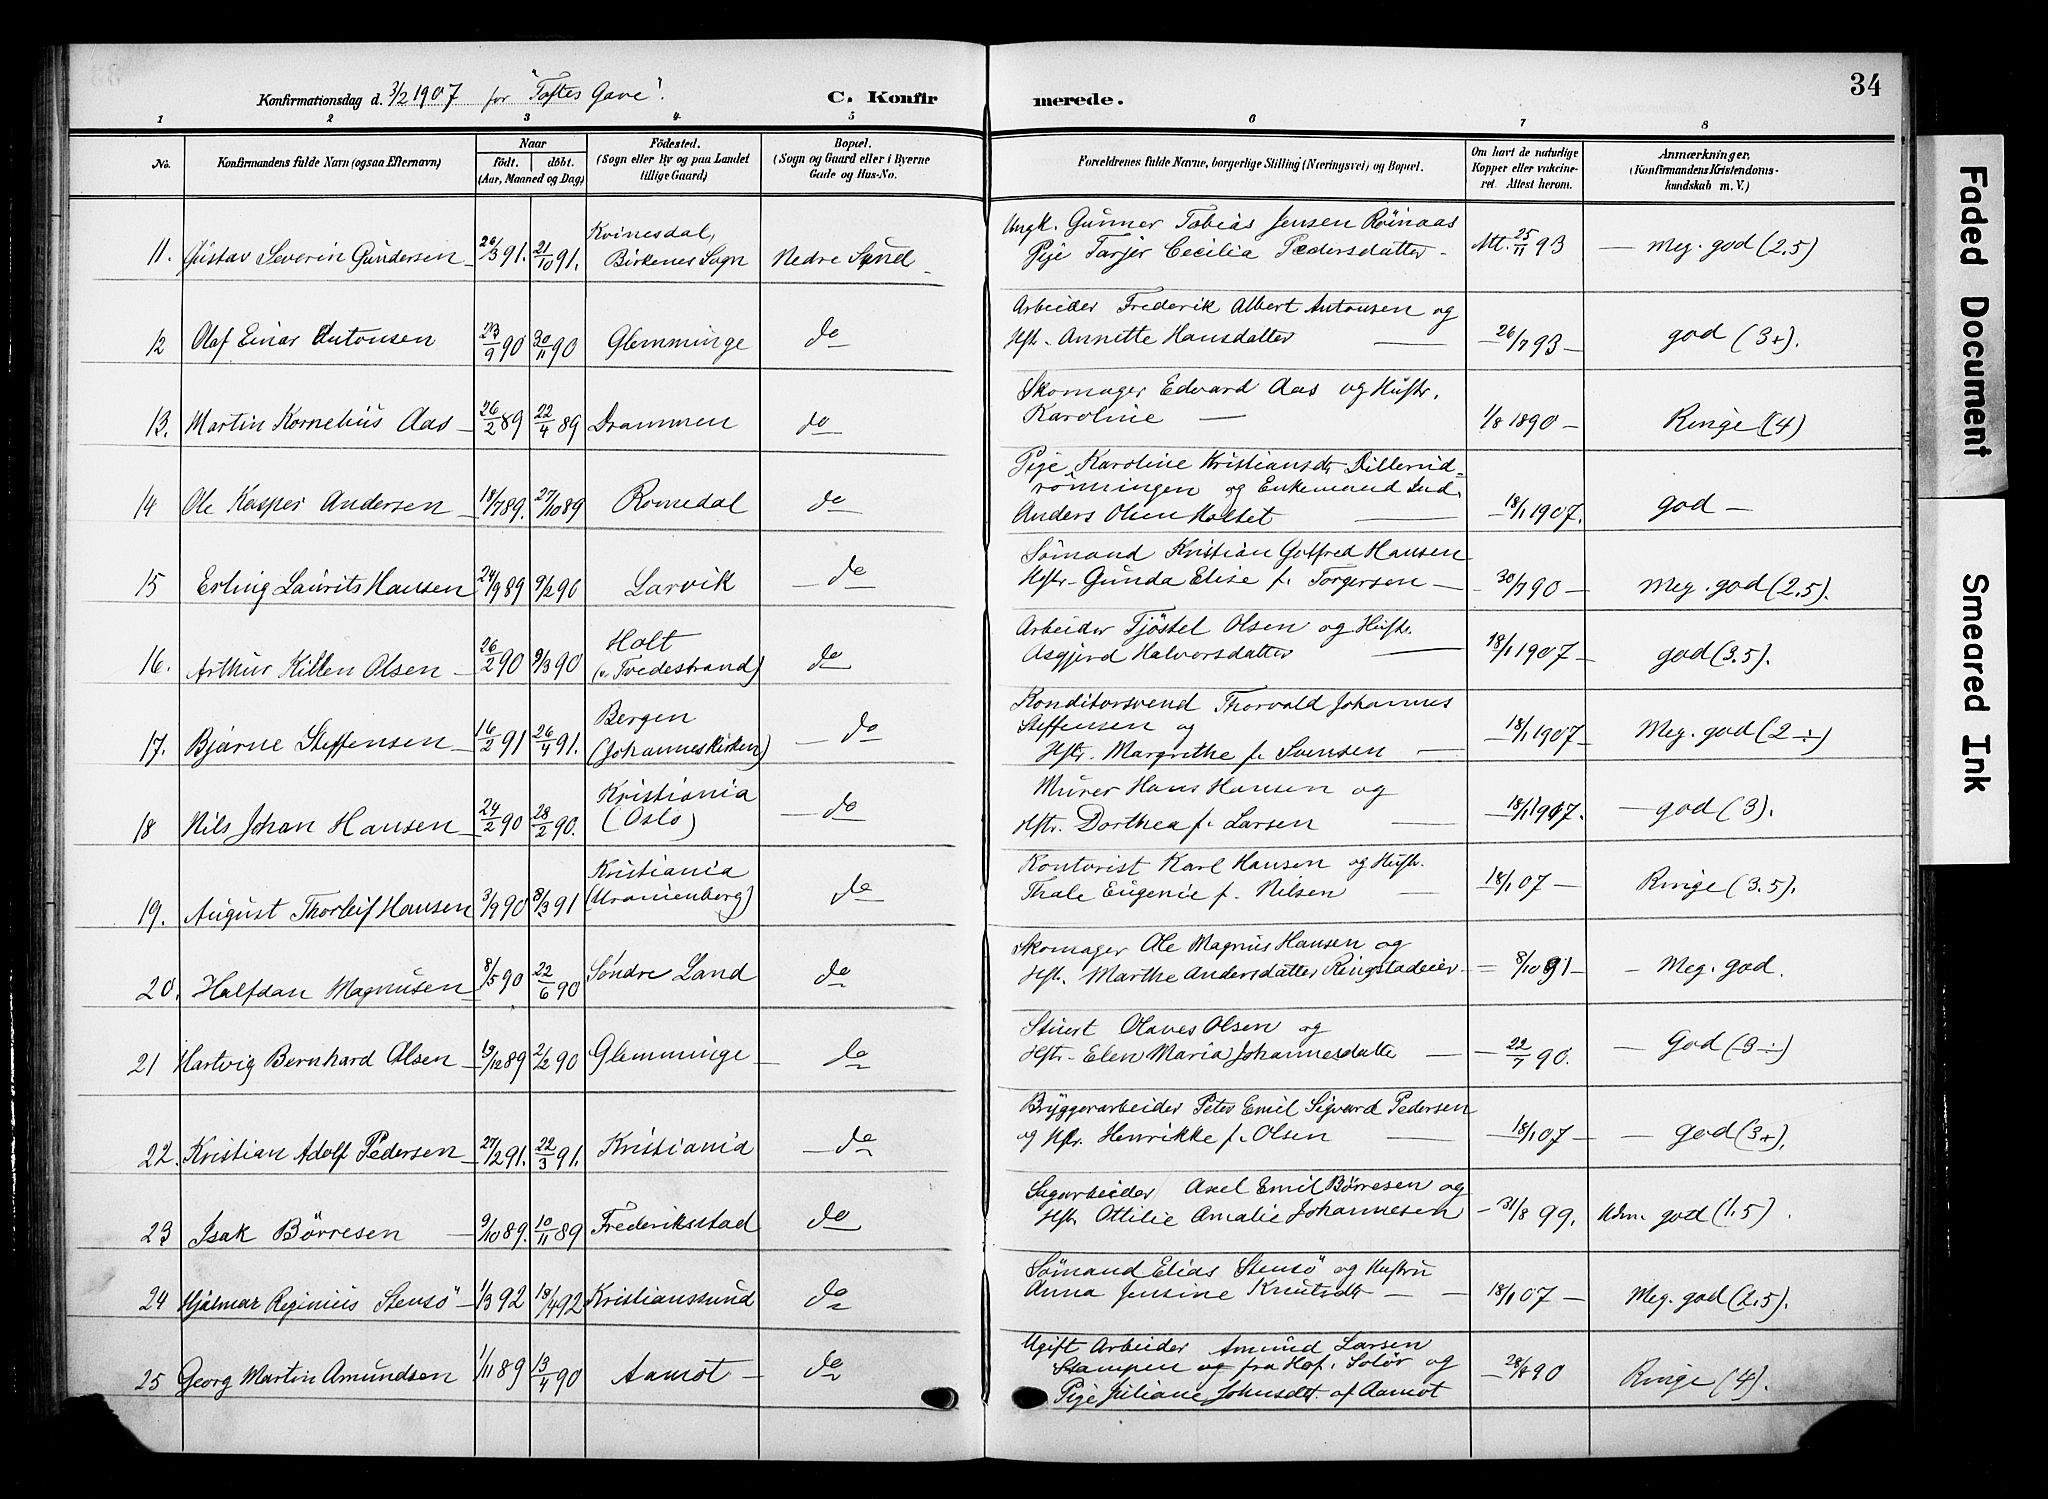 34
Konfirmationsdag d. 3/2 1907 for "Toftes Gave". C. Konfirmerede.
1 2 3 4 5 6 7 8
No. Konfirmandens fulde Navn (ogsaa Efternavn) Naar født. døbt. (Aar, Maaned og Dag) Fødested. (Sogn eller By og paa Landet tillige Gaard) Bopæl. (Sogn og Gaard eller i Byerne Gade og Hus-No. Forældrenes fulde Navne, borgerlige Stilling (Næringsvei) og Bopæl. Om havt de naturlige Kopper eller vakcineret. Attest herom. Anmærkninger. (Konfirmandens Kristendomskundskab m. V.)
11. Gustav Severin Gundersen 26/3 91. 21/10 91. Kvinesdal, Birkenes Sogn Nedre Sund Ungk. Gunner Tobias Jensen Röinaas Pige Tarjer Cecilia Pedersdatter Att. 25/11 93 Meg. god (2.5)
12 Olaf Einar Antonsen 23/9 90 30/11 90 Glemminge do Arbeider Frederik Albert Antonsen og Hstr. Annette Hansdatter 26/7 93 god (3+).
13. Martin Kornelius Aas 26/2 89 22/4 89 Drammen do Skomager Edvard Aas og Hustr. Karoline 1/8 1890 Ringe (4)
14 Ole Kasper Andersen 18/7 89. 27/10 89 Romedal do Pige Karoline Kristiansdt Dillerudrönningen og Enkemand Ind. Anders Olsen Holtet 18/1 1907. god
15 Erling Laurits Hansen 24/9 89 9/2 90 Larvik do Sömand Kristian Gotfred Hansen Hstr. Gunda Elise f. Torgersen 30/7 90 Meg. god (2,5).
16. Arthur Killen Olsen 26/2 90 9/3 90 Holt (v. Tvedestrand) do Arbeider Tjöstel Olsen og Hustr. Asgjerd Halvorsdatter 18/1 1907 god (3.5).
17. Bjarne Steffensen 16/2 91 26/4 91. Bergen (Johanneskirken) do Konditorsvend Thorvald Johannes Steffensen og Hstr. Margrethe f. Svensen 18/1 1907 Meg. god (2 ÷)
18 Nils Johan Hansen 24/2 90 28/2 90. Kristiania (Oslo) do Murer Hans Hansen og Hstr. Dorthea f. Larsen 18/1 1907. god (3).
19. August Thorleif Hansen 3/9 90 8/3 91 Kristiania (Uranienborg) do Kontorist Karl Hansen og Hustr. Thale Eugenie f. Nilsen 18/1 07 Ringe (3.5).
20. Halfdan Magnusen 8/5 90 22/6 90 Søndre Land do Skomager Ole Magnus Hansen og Hstr. Marthe Andersdatter Ringstadeier 8/10 91 Meg. god.
21 Hartvig Bernhard Olsen 19/12 89 2/2 90 Glemminge do Stuert Olaves Olsen og Hstr. Elen Maria Johannesdatte 22/7 90. God (3 ÷)
22. Kristian Adolf Pedersen 27/2 91. 22/3 91. Kristiania do Bryggerarbeider Peter Emil Sigvard Pedersen og Hstr. Henrikke f. Olsen 18/1 07 god (3+).
23 Isak Börresen 9/10 89. 10/11 89 Frederiksstad do Sagarbeider Axel Emil Børresen og Hstr. Ottilie Amalie Johannesen 31/8 99. Udm. god (1,5).
24 Hjalmar Reginius Stensö 1/3 92 18/4 92 Kristianssund do Sømand Elias Stensö og Hustru Anna Jensine Knutsdt 18/1 07 Meg. god (2,5).
25 Georg Martin Amundsen 1/11 89 13/4 90 Aamot do Ugift Arbeider Amund Larsen Stampen og fra Hof. Solör og Pige Juliane Johnsdt. af Aamot 28/8 90 Ringe (4).
Faded Document
Smeared Ink